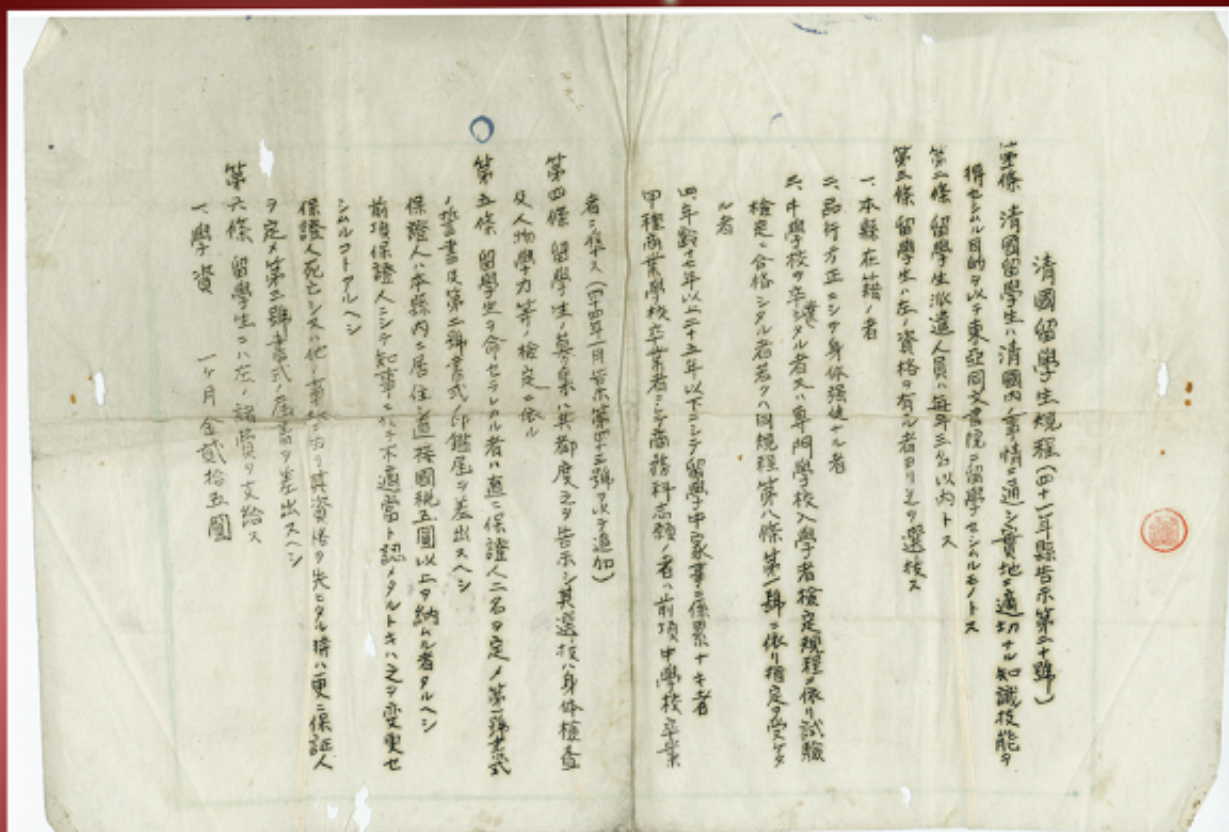 清國留學生規程(四十一年縣告示第二十號)
第壹條 清國留學生ハ清國内事情ニ通シ實地ニ適切ナル知識技能ヲ
得セシムル目的ヲ以テ東亞同文書院ニ留學セシムルモノトス
第二條 留學生派遣人員ハ毎年三名以内トス
第三條 留學生ハ左ノ資格ヲ有スル者ヨリ之ヲ選拔ス
一、本縣在籍ノ者
二、品行方正ニシテ身体强健ナル者
三、中學校ヲ卒業シタル者又ハ專門學校入學者檢定規程ニ依リ試驗
檢定ニ合格シタル者若クハ同規程第八條第一號ニ依リ指定ヲ受ケタ
ル者
四、年齡十七年以上二十五年以下ニシテ留學中家事ニ係累ナキ者
甲種商業學校卒業者ニシテ商務科志願ノ者ハ前項中學校卒業
者ニ準ス(四十四年一月告示第四十三號ヲ以テ追加)
第四條 留學生ノ募集ハ其都度之ヲ告示シ其選拔ハ身体檢査
及人物學力等ノ檢定ニ依ル
第五條 留學生ヲ命セラレタル者ハ直ニ保證人二名ヲ定メ第一號書式
ノ誓書及第二號書式ノ印鑑屆ヲ差出スヘシ
保證人ハ本縣内ニ居住シ直接國税五圓以上ヲ納ムル者タルヘシ
前項保證人ニシテ知事ニ於テ不適當ト認メタルトキハ之ヲ変更セ
シムルコトアルヘシ
保證人死亡シ又ハ他ノ事故ニ由リ其資格ヲ失ヒタル時ハ更ニ保証人
ヲ定メ第二號書式ノ屆書ヲ差出スヘシ
第六條 留學生ニハ左ノ諸費ヲ支給ス
一、學資 一ヶ月金貳拾五圓